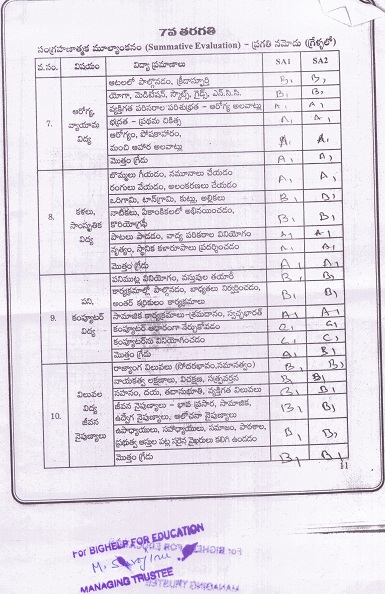 7వ తరగతి
సంగ్రహణాత్మక మూల్యాంకనం (Summative Evaluation) – ప్రగతి నమోదు (గ్రేళ్ళలో)
వ.సం. విషయం విద్యా ప్రమాణాలు SA1 SA2
7. ఆరోగ్య, వ్యాయామ విద్య
ఆటలలో పాల్గొనడం, క్రీడాస్ఫూర్తి B1 B1
యోగా, మెడిటేషన్, స్కౌట్స్, గైడ్స్, ఎన్.సి.సి. B1 B1
వ్యక్తిగత పరిసరాల పరిశుభ్రత – ఆరోగ్య అలవాట్లు A1 A1
భద్రత – ప్రథమ చికిత్స A1 A1
ఆరోగ్యం, పోషకాహారం,
మంచి ఆహార అలవాట్లు A1 A1
మొత్తం గ్రేడు A1 A1
8. కళలు, సాంస్కృతిక విద్య
బొమ్మలు గీయడం, నమూనాలు చేయడం
రంగులు వేయడం, అలంకరణలు చేయడం A1 A1
ఒరిగామి, టాన్‌గ్రామ్, కుట్లు, అల్లికలు B1 B1
నాటికలు, ఏకాంకికలలో అభినయించడం,
కొరియోగ్రఫీ B1 B1
పాటలు పాడడం, వాద్య పరికరాల వినియోగం A1 A1
నృత్యం, స్థానిక కళారూపాలు ప్రదర్శించడం A1 A1
మొత్తం గ్రేడు A1 A1
9. పని, కంప్యూటర్ విద్య
పనిముట్ల వినియోగం, వస్తువుల తయారీ B1 B1
కార్యక్రమాల్లో పాల్గొనడం, బాధ్యతలు నిర్వర్తించడం,
అంతర్ తర్గతులం కార్యక్రమాలు B1 B1
సామాజిక కార్యక్రమాలు–శ్రమదానం, స్వచ్ఛభారత్ A1 A1
కంప్యూటర్ ఆధారంగా నేర్చుకోవడం C1 C1
కంప్యూటర్‌ను వినియోగించడం C1 C1
మొత్తం గ్రేడు A1 B1
10. విలువల విద్య జీవన నైపుణ్యాలు
రాజ్యాంగ విలువలు (సోదరభావం,సమానత్వం) B1 B1
నాయకత్వ లక్షణాలు, విచక్షణ, సత్ప్రవర్తన B1 B1
సహనం, దయ, తదానుభూతి, వ్యక్తిగత విలువలు B1 B1
జీవన నైపుణ్యాలు – భావ ప్రసార, సామాజిక,
ఉద్వేగ నైపుణ్యాలు, ఆలోచనా నైపుణ్యాలు B1 B1
ఉపాధ్యాయులు, సహాధ్యాయులు, సమాజం, పాఠశాల,
ప్రభుత్వ ఆస్తుల పట్ల సరైన వైఖరులు కలిగి ఉండడం B1 B1
మొత్తం గ్రేడు B1 B1
11
For BIGHELP FOR EDUCATION
MANAGING TRUSTEE